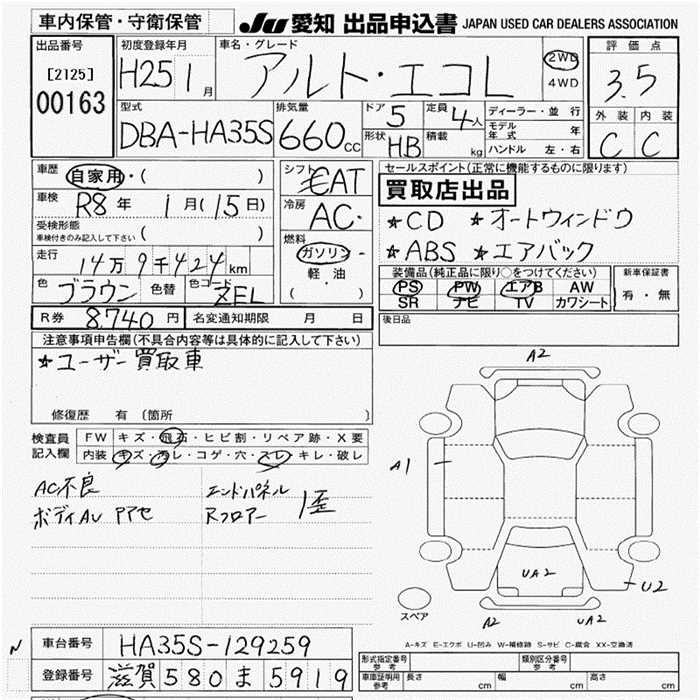 車内保管・守衛保管
JU 愛知 出品申込書 JAPAN USED CAR DEALERS ASSOCIATION
出品番号 [2125] 00163
初度登録年月 H25 1月
車名・グレード アルト・エコL
2WD 4WD
評価点 3.5
外装 C 内装 C
型式 DBA-HA35S
排気量 660cc
ドア 5 定員 4人
形状 HB 積載 kg
ディーラー・並行
モデル年式 年
ハンドル 左・右
車歴 自家用・( )
車検 R8年 1月(15日)
受検形態 車検付きのみ記入して下さい ( )
走行 14万9千424km
色 ブラウン 色替 色コード ZEL
シフト AT
冷房 AC
燃料 ガソリン・軽油 ( )
セールスポイント(正常に機能するものに限ります)
買取店出品
★CD ★オートウィンドウ
★ABS ★エアバック
装備品(純正品に限り○をつけてください)
PS PW エアB AW
SR ナビ TV カワシート
新車保証書 有・無
R券 8,740円 名変通知期限 月 日
後日品
注意事項申告欄(不具合内容等は具体的に記入して下さい)
★ユーザー買取車
修復歴 有 (箇所 )
検査員記入欄
FW キズ・飛石・ヒビ割・リペア跡・X要
内装 キズ・汚レ・コゲ・穴・スレ・キレ・破レ
AC不良 エンドパネル
ボディAU アアセ Rフロアー 歪
A2
A1
UA2
U2
A2 UA2
スペア
A-キズ E-エクボ U-凹み W-補修跡 S-サビ C-腐食 XX-交換済
N
車台番号 HA35S-129259
登録番号 滋賀 580 ま 5919
形式指定番号 参考 類別区分番号 参考
車庫証明用 参考 長さ cm 幅 cm 高さ cm